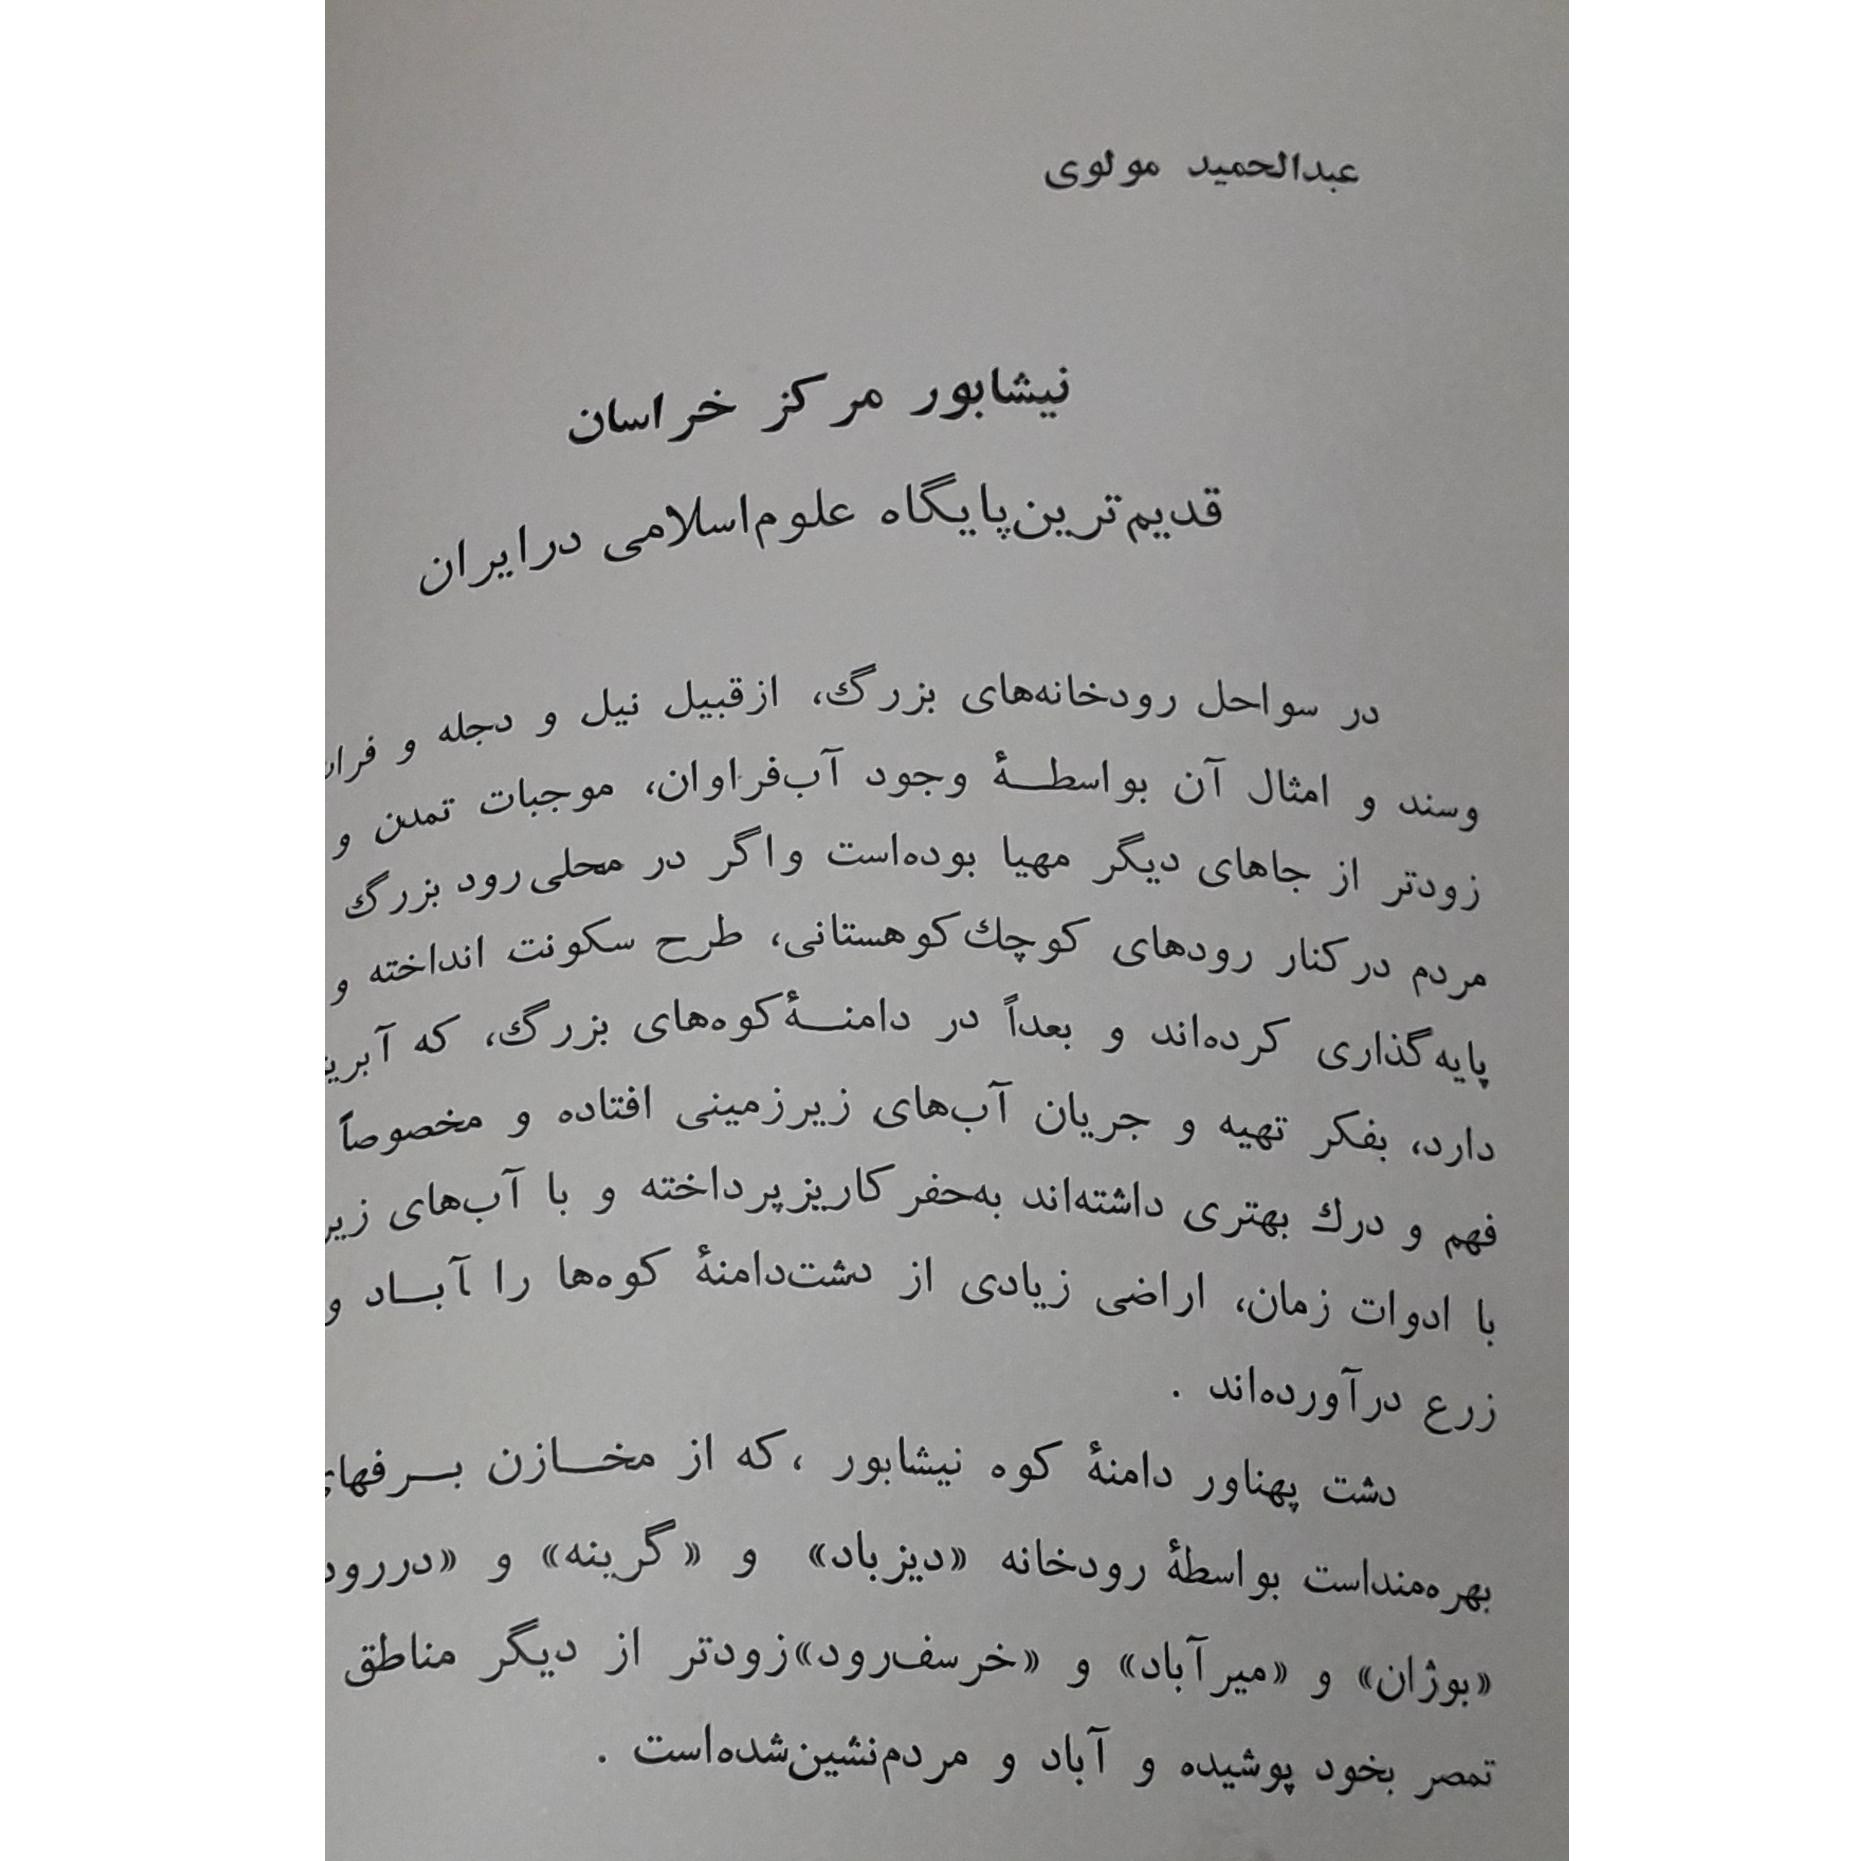 عبدالحمید مولوی
نیشابور مرکز خراسان
قدیم‌ترین پایگاه علوم اسلامی در ایران
در سواحل رودخانه‌های بزرگ، از قبیل نیل و دجله و
وسند و امثال آن بواسطهٔ وجود آب فراوان، موجبات تمدن و
زودتر از جاهای دیگر مهیا بوده‌است واگر در محلی رود بزرگ
مردم در کنار رودهای کوچک کوهستانی، طرح سکونت انداخته و
پایه‌گذاری کرده‌اند و بعداً در دامنهٔ کوه‌های بزرگ، که
دارد، بفکر تهیه و جریان آب‌های زیرزمینی افتاده و مخصوصاً
فهم و درک بهتری داشته‌اند به‌حفر کاریز پرداخته و با آب‌های
با ادوات زمان، اراضی زیادی از دشت‌دامنهٔ کوه‌ها را آباد و
زرع درآورده‌اند .
دشت پهناور دامنهٔ کوه نیشابور ، که از مخازن
بهره‌منداست بواسطهٔ رودخانه «دیزباد» و «گرینه» و
«بوژان» و «میرآباد» و «خرسف‌رود» زودتر از دیگر مناطق
تمصر بخود پوشیده و آباد و مردم‌نشین‌شده‌است .